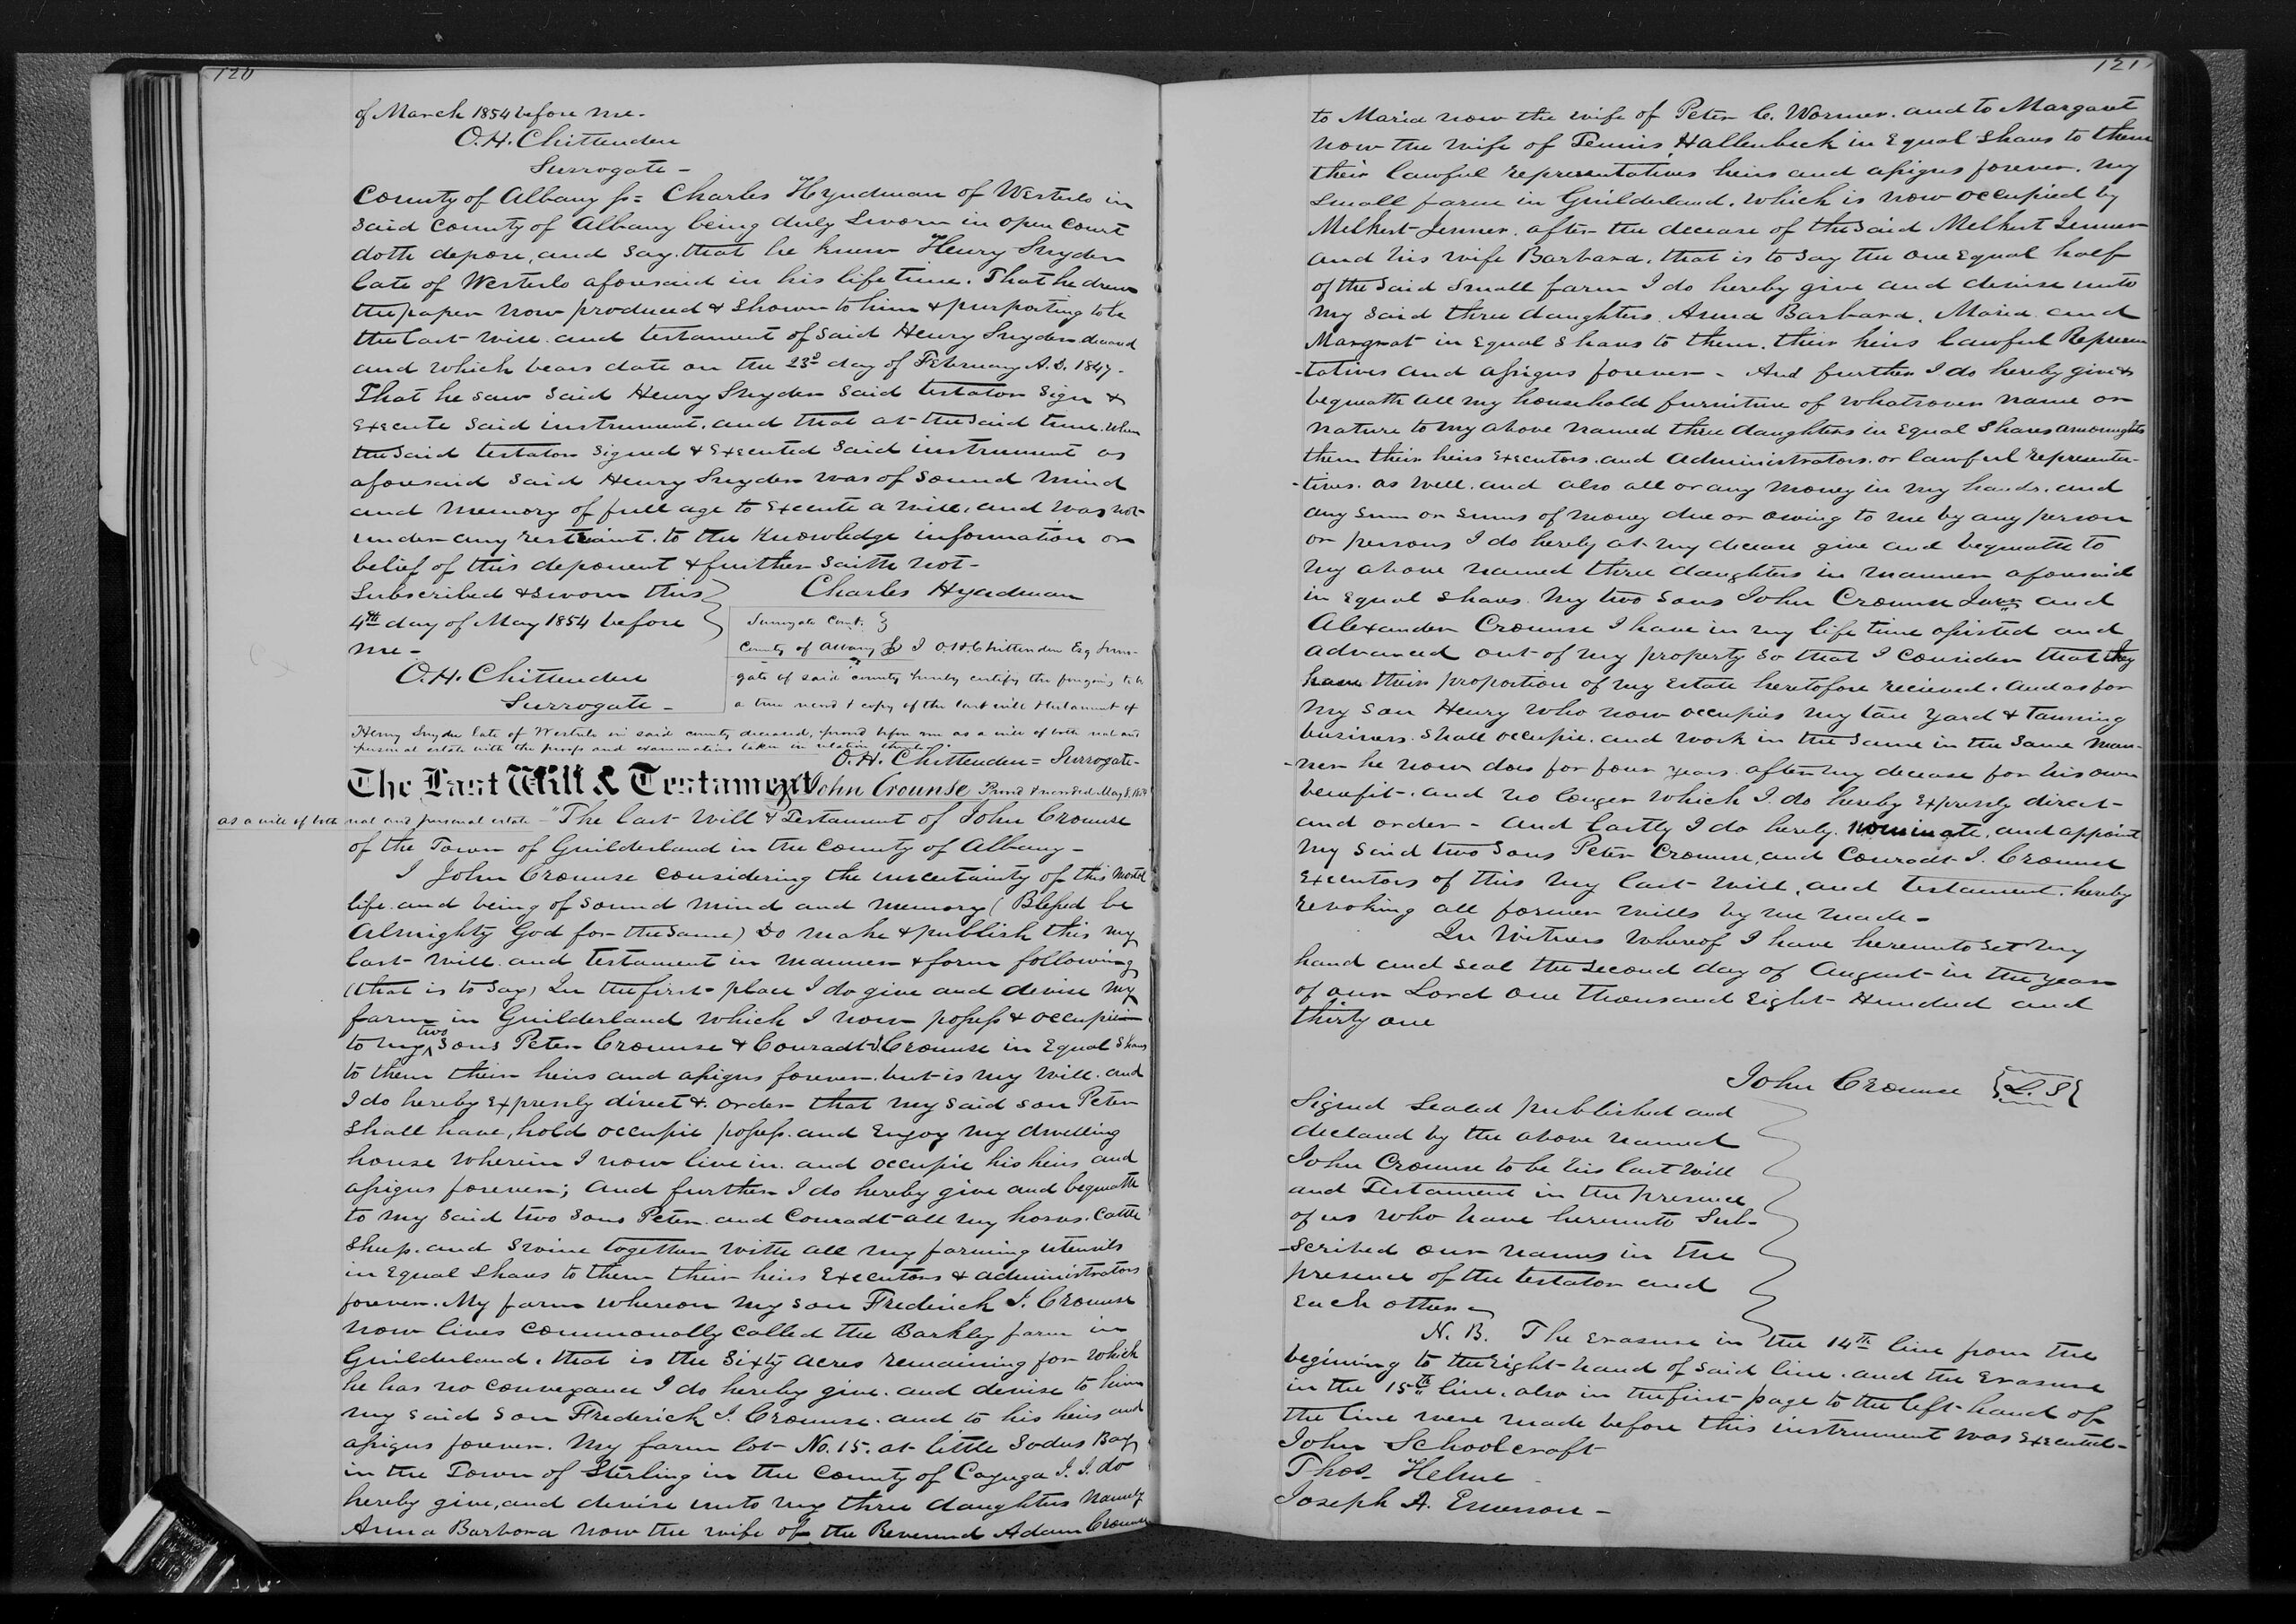 120
of March 1854 before me.
O. H. Chittenden
Surrogate -
County of Albany ss= Charles Hyndman of Westerlo in
said County of Albany being duly sworn in open Court
doth depose, and say that he knew Henry Snyder
late of Westerlo aforesaid in his life time. That he drew
the paper now produced & shown to him & purporting to be
the last will and testament of said Henry Snyder deceased
and which bears date on the 23d day of February A.D. 1847.
That he saw said Henry Snyder said testator sign &
Execute said instrument, and that at the said time when
the said testator signed & Executed said instrument as
aforesaid said Henry Snyder was of sound mind
and memory of full age to Execute a will, and was not
under any restraint. to the Knowledge information or
belief of this deponent & further saith not -
Subscribed & sworn this
Charles Hyndman
4th day of May 1854 before
me -
O. H. Chittenden
Surrogate -
Surrogate Court.
County of Albany ss I O. H. Chittenden Esq Surro-
gate of said county hereby certify the foregoing to be
a true record & copy of the last will & testament of
Henry Snyder late of Westerlo in said county deceased, proved before me as a will of both real and
personal estate with the proofs and examinations taken in relation thereto.
O. H. Chittenden = Surrogate -
The Last Will & Testament of John Crounse Proved & recorded May 8, 1854
as a will of both real and personal estate - "The last Will & Testament of John Crounse
of the Town of Guilderland in the County of Albany -
I John Crounse considering the uncertainty of this mortal
life and being of sound mind and memory (Blessed be
Almighty God for the same) Do make & publish this my
last will and testament in manner & form following
(that is to say) In the first place I do give and devise my
farm in Guilderland which I now possess & occupie
to my two sons Peter Crounse & Conradt I. Crounse in Equal Shares
to them their heirs and assigns forever. but is my will. and
I do hereby Expressly direct & order that my said son Peter
shall have, hold occupie possess and Enjoy my dwelling
house wherein I now live in. and occupie his heirs and
assigns forever; and further I do hereby give and bequeath
to my said two sons Peter and Conradt all my horses. Cattle
Sheep. and Swine together with all my farming utensils
in Equal shares to them their heirs Executors & administrators
forever. My farm whereon my son Frederick I. Crounse
now lives commonally called the Barkley farm in
Guilderland. that is the sixty acres remaining for which
he has no conveyance I do hereby give. and devise to him
my said son Frederick I. Crounse. and to his heirs and
assigns forever. My farm lot No. 15. at little Sodus Bay
in the Town of Sterling in the County of Cayuga I. I. do
hereby give, and devise unto my three daughters Namely
Anna Barbara now the wife of the Reverend Adam Crounse
121
to Maria now the wife of Peter C. Wormer. and to Margaret
now the wife of Teunis Hallenbeck in Equal Shares to them
their lawful representatives heirs and assigns forever. My
small farm in Guilderland. which is now occupied by
Melkert Jenner. after the decease of the said Melkert Jenner
and his wife Barbara. that is to say the one Equal half
of the said small farm I do hereby give and devise unto
my said three daughters Anna Barbara. Maria and
Margrat in Equal shares to them. their heirs lawful Represen
-tatives and assigns forever - And further I do hereby give &
bequeath all my household furniture of whatsoever name or
nature to my above named three daughters in Equal Shares amoungst
them their heirs Executors and administrators. or lawful representa-
-tives. as well. and also all or any money in my hands. and
any sum or sums of money due or owing to me by any person
or persons I do hereby at my decease give and bequeath to
my above named three daughters in manner aforesaid
in Equal shares. My two sons John Crounse Junr and
Alexander Crounse I have in my life time assisted and
advanced out of my property so that I consider that they
have their proportion of my Estate heretofore recieved. and as for
my son Henry who now occupies my tan yard & Tanning
business. shall occupie. and work in the same in the same man-
-ner he now does for four years. after my decease for his own
benefit. and no longer which I do hereby Expressly direct
and order - And lastly I do hereby. nominate. and appoint
my said two sons Peter Crounse, and Conradt I. Crounse
Executors of this my last will, and testament. hereby
revoking all former wills by me made -
In Witness Whereof I have hereunto set my
hand and seal the second day of August in the year
of our Lord one thousand Eight Hundred and
thirty one
John Crounse {L. S}
Signed Sealed published and
declared by the above named
John Crounse to be his last will
and Testament in the presence
of us who have hereunto Sub-
-scribed our names in the
presence of the testator and
Each other -
N. B. The Erasure in the 14th line from the
begining to the right hand of said line. and the Erasure
in the 15th line. also in the first page to the left hand of
the line were made before this instrument was Executed -
John Schoolcraft
Thos. Helme
Joseph A. Emerson -